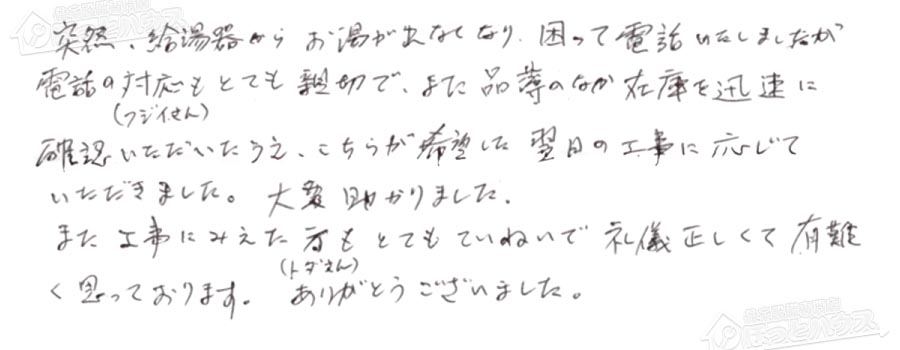 突然、給湯器から お湯が出なくなり、困って電話いたしましたが
電話の対応もとても親切で、また品薄のなか在庫を迅速に
(フジイさん)
確認いただいたうえ、こちらが希望した翌日の工事に応じて
いただきました。大変助かりました。
また工事にみえた方もとてもていねいで礼儀正しくて有難
(トダさん)
く思っております。ありがとうございました。
ほっとハウス
ほっとハウス